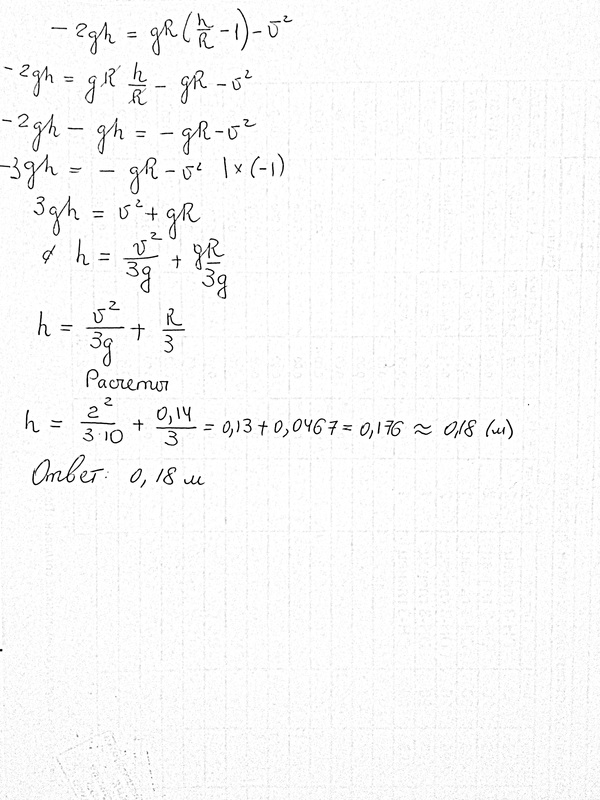 - 2gh = gR(h/R - 1) - υ²
- 2gh = gR h/R - gR - υ²
- 2gh - gh = - gR - υ²
- 3gh = - gR - υ² | × (-1)
3gh = υ² + gR
h = υ²/3g + gR/3g
h = υ²/3g + R/3
Расчеты
h = 2²/3·10 + 0,14/3 = 0,13 + 0,0467 = 0,176 ≈ 0,18 (м)
Ответ: 0,18 м